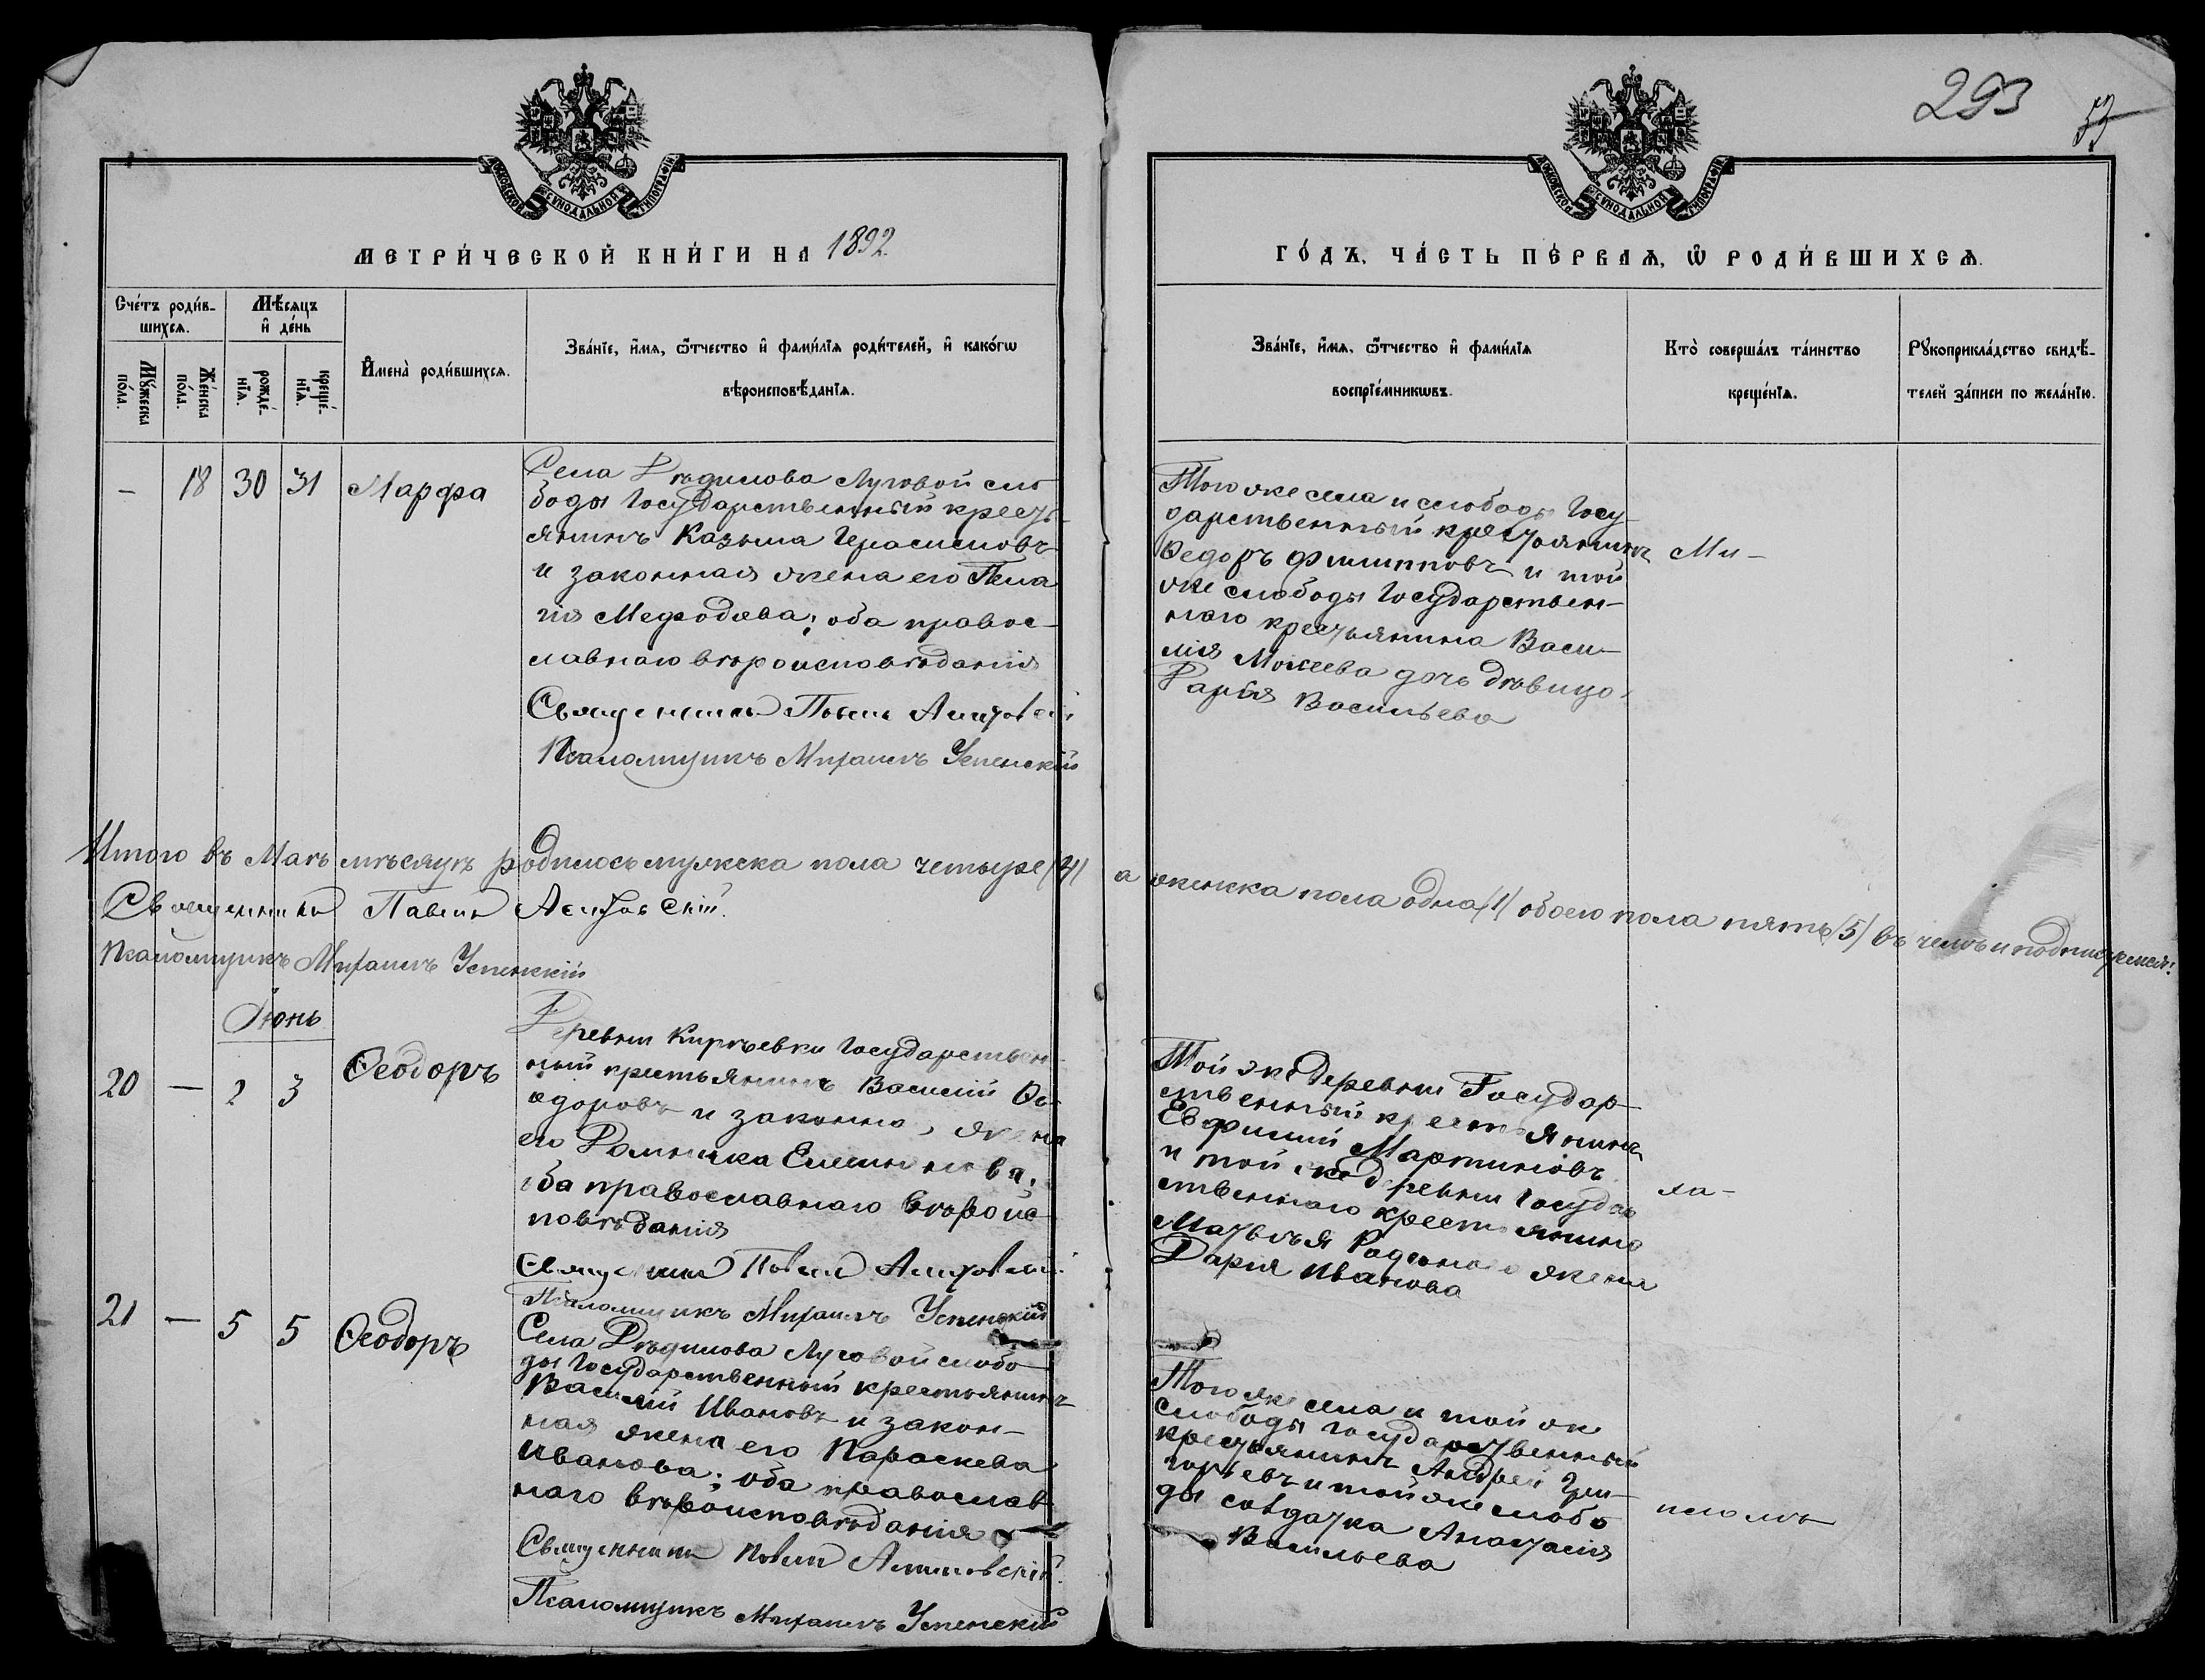 293
53
МОСКОВСКОЙ СѴНОДАЛЬНОЙ ТИПОГРАФІИ
МОСКОВСКОЙ СѴНОДАЛЬНОЙ ТИПОГРАФІИ
МЕТРИ́ЧЕСКОЙ КНИ́ГИ НА 1892
ГО́ДЪ, ЧА́СТЬ ПЕ́РВАѦ, Ѿ РОДИ́ВШИХСѦ.
Сче́тъ роди́в-
шихсѧ.
Мꙋ́жеска
по́ла.
Же́нска
по́ла.
Мѣ́сяцъ
и҆ де́нь
рожде́-
нїѧ.
креще́-
нїѧ.
И҆мена̀ роди́вшихсѧ.
Зва́нїе, и҆́мѧ, ѻ҆́тчество и҆ фами́лїѧ роди́телей, и҆ како́гѡ
вѣроисповѣ́данїѧ.
Зва́нїе, и҆́мѧ, ѻ҆́тчество и҆ фами́лїѧ
воспрїе́мникѡвъ.
Кто̀ соверша́лъ та́инство
креще́нїѧ.
Рꙋкоприкла́дство свидѣ́-
телей за́писи по жела́нїю.
– 18 30 31 Марфа
Села Дѣдилова Луговой сло
боды Государственный кресть
янинъ Казьма Герасимовъ
и законная жена его Пела
гія Мефодіева; оба правос-
лавнаго вѣроисповѣданія
Священникъ Павелъ
Псаломщикъ Михаилъ Успенскій
Того же села и слободы Госу
дарственный крестьянинъ
Ѳедоръ Филипповъ и той
же слободы Государствен-
наго крестьянина Васи-
лія Мокеева дочь дѣвица
Дарія Васильева
Ми-
Итого въ Маѣ мѣсяцѣ родилось мужеска пола четыре (4) а женска пола одна (1) обоего пола пять (5) въ чемъ и подписуемся:
Священникъ Павелъ
Псаломщикъ Михаилъ Успенскій
Іюнь
20 – 2 3 Ѳеодоръ
Деревни Кирѣевки Государствен
ный крестьянинъ Василій Ѳе-
одоровъ и законная жена
его Домника
оба православнаго вѣроис
повѣданія
Священникъ Павелъ
Псаломщикъ Михаилъ Успенскій
Той же деревни Государ-
ственный крестьянинъ
Евфимій Мартиновъ
и той же деревни Госуда
ственнаго крестьянина
Матвѣя Родіонова жена
Дарія Иванова
ха-
21 – 5 5 Ѳеодоръ
Села Дѣдилова Луговой слобо
ды Государственный крестьянинъ
Василій Ивановъ и закон-
ная жена его Параскева
Иванова; оба православ
наго вѣроисповѣданія
Священникъ Павелъ
Псаломщикъ Михаилъ Успенскій
Того же села и той же
слободы Государственный
крестьянинъ Андрей Гри-
горьевъ и той же слобо
ды солдатка Анастасія
Васильева